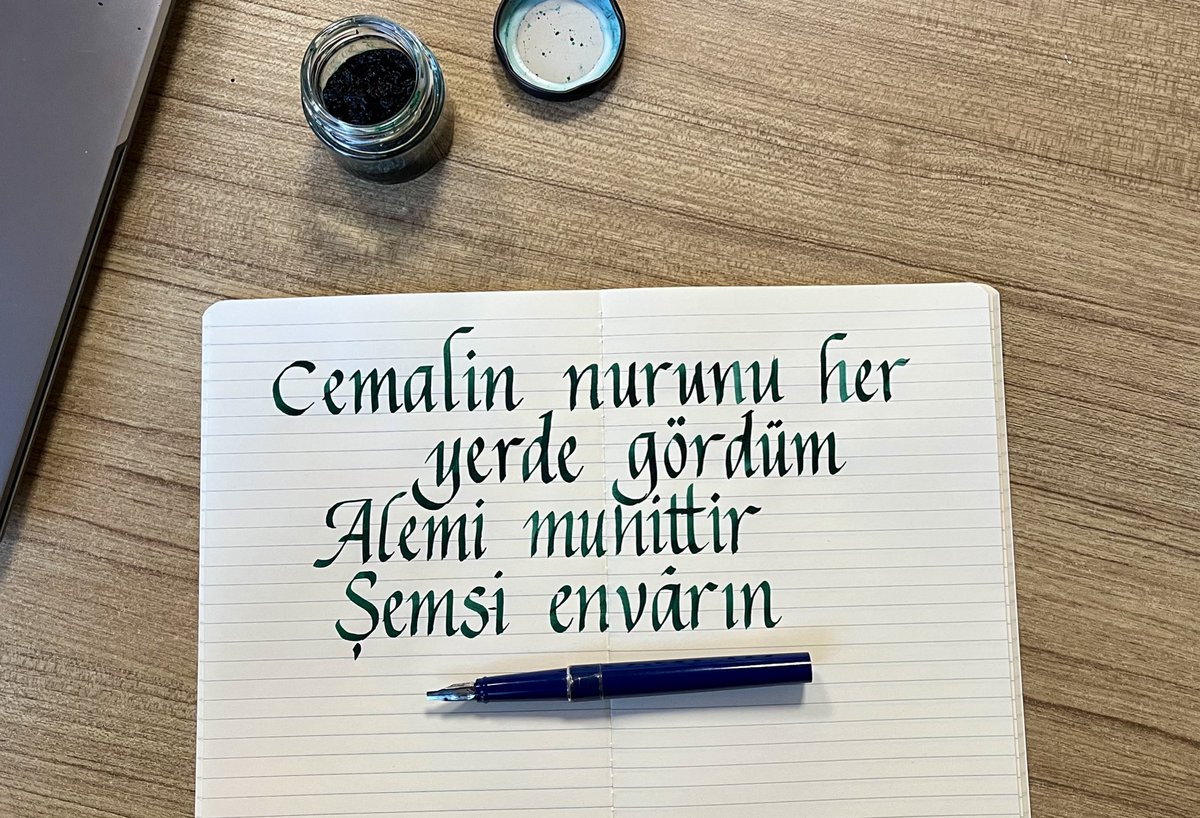 Cemalin nurunu her
yerde gördüm
Alemi muhittir
Şemsi envârın